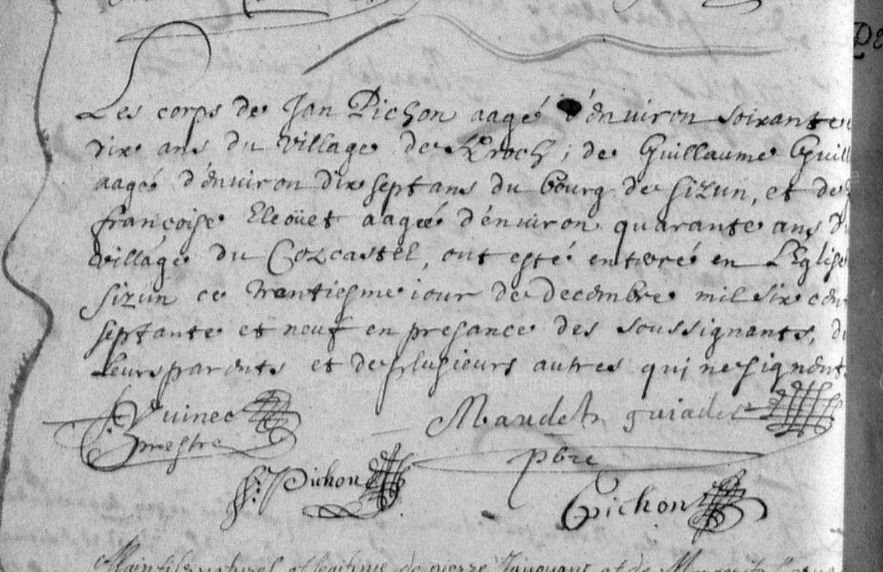 Les corps de Jan Pichon aagé d'environ soixante
dix ans du village de K'roch; de Guillaume Guill
aagé d'environ dix sept ans du bourg de Sizun, et de
françoise Eleoüet aageé d'environ quarante ans d
village du Cozcastel, ont esté enterré en L'Eglise
Sizun ce trentiesme iour de decembre mil six cent
septante et neuf en presance des soussignants, d
leurs parents et de plusieurs autres qui ne signent
Maudet guiader
pbre
Pichon
Pichon